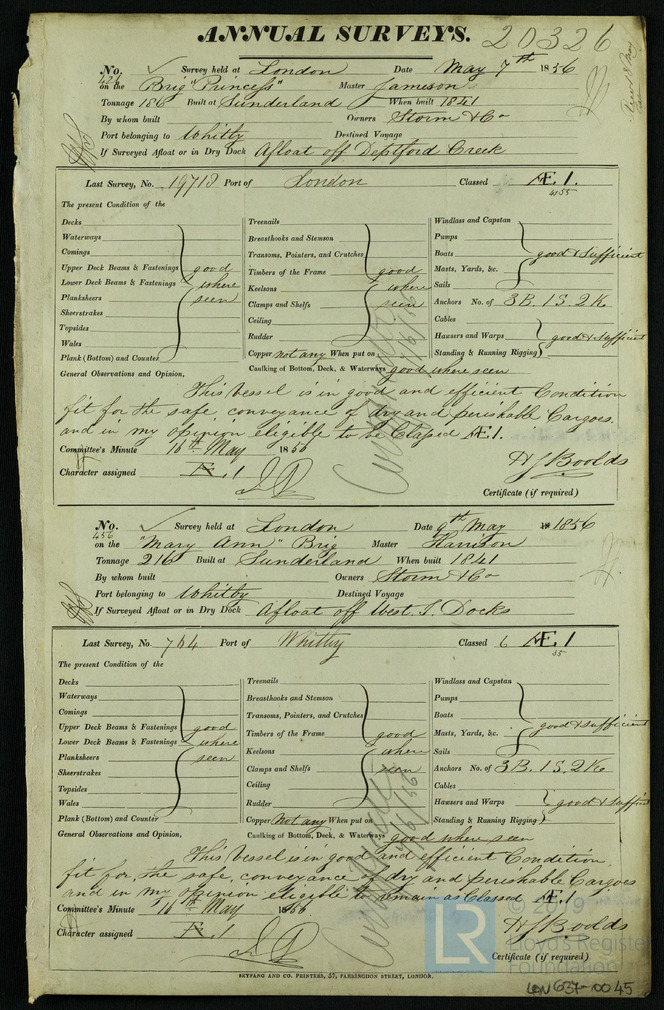 ANNUAL SURVEYS. 20326
No. 426 ✓ Survey held at London Date May 7th 1856
on the Brig "Princess" Master Jameson
Tonnage 186 Built at Sunderland When built 1841
By whom built Owners Storm & Co
Port belonging to Whitby Destined Voyage
If Surveyed Afloat or in Dry Dock Afloat off Deptford Creek
Last Survey, No. 19713 Port of London Classed Æ 1.
4155
The present Condition of the
Decks Treenails Windlass and Capstan
Waterways Breasthooks and Stemson Pumps
Comings Transoms, Pointers, and Crutches Boats good & Sufficient
Upper Deck Beams & Fastenings good Timbers of the Frame good Masts, Yards, &c.
Lower Deck Beams & Fastenings where Keelsons where Sails
Planksheers seen Clamps and Shelfs seen Anchors No. of 3B. 1S. 2K
Sheerstrakes Ceiling Cables
Topsides Rudder Hausers and Warps good & sufficient
Wales Copper not any When put on Standing & Running Rigging
Plank (Bottom) and Counter Caulking of Bottom, Deck, & Waterways good where seen
General Observations and Opinion,
This Vessel is in good and efficient Condition
fit for the safe conveyance of dry and perishable Cargoes.
and in my opinion eligible to be Classed Æ 1.
Committee's Minute 16th May 1856
Character assigned Æ 1
H J Boolds
Certificate (if required)
No. 456 ✓ Survey held at London Date 9th May 1856
on the "Mary Ann" Brig Master Harrison
Tonnage 216 Built at Sunderland When built 1841
By whom built Owners Storm & Co
Port belonging to Whitby Destined Voyage
If Surveyed Afloat or in Dry Dock Afloat off West I. Docks
Last Survey, No. 764 Port of Whitby Classed 6 Æ 1
55
The present Condition of the
Decks Treenails Windlass and Capstan
Waterways Breasthooks and Stemson Pumps
Comings Transoms, Pointers, and Crutches Boats
Upper Deck Beams & Fastenings good Timbers of the Frame good Masts, Yards, &c. good & sufficient
Lower Deck Beams & Fastenings where Keelsons where Sails
Planksheers seen Clamps and Shelfs seen Anchors No. of 3B. 1S. 2K
Sheerstrakes Ceiling Cables
Topsides Rudder Hausers and Warps good & sufficient
Wales Copper Not any When put on Standing & Running Rigging
Plank (Bottom) and Counter Caulking of Bottom, Deck, & Waterways good where seen
General Observations and Opinion,
This Vessel is in good and efficient Condition.
fit for the safe conveyance of dry and perishable Cargoes
and in my opinion eligible to remain as Classed Æ 1
Committee's Minute 16th May 1856
Character assigned Æ 1
H J Boolds
Certificate (if required)
© 2019
LR Lloyd's Register
Foundation
SEYFANG AND CO. PRINTERS, 57, FARRINGDON STREET, LONDON.
LON 637-0045